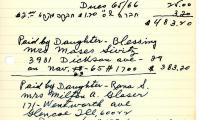 Dues 65/66 25.00
3.20
$483.20
Paid by Daughter - Blessing
Mrs Moses Sivitz
3981 Dickson ave - 29
on Nov. -65 #1700 $383.20
Paid by Daughter - Rona S.
Mrs Milton A. Glaser
171- Wentworth ave
Glencoe Ill 60022